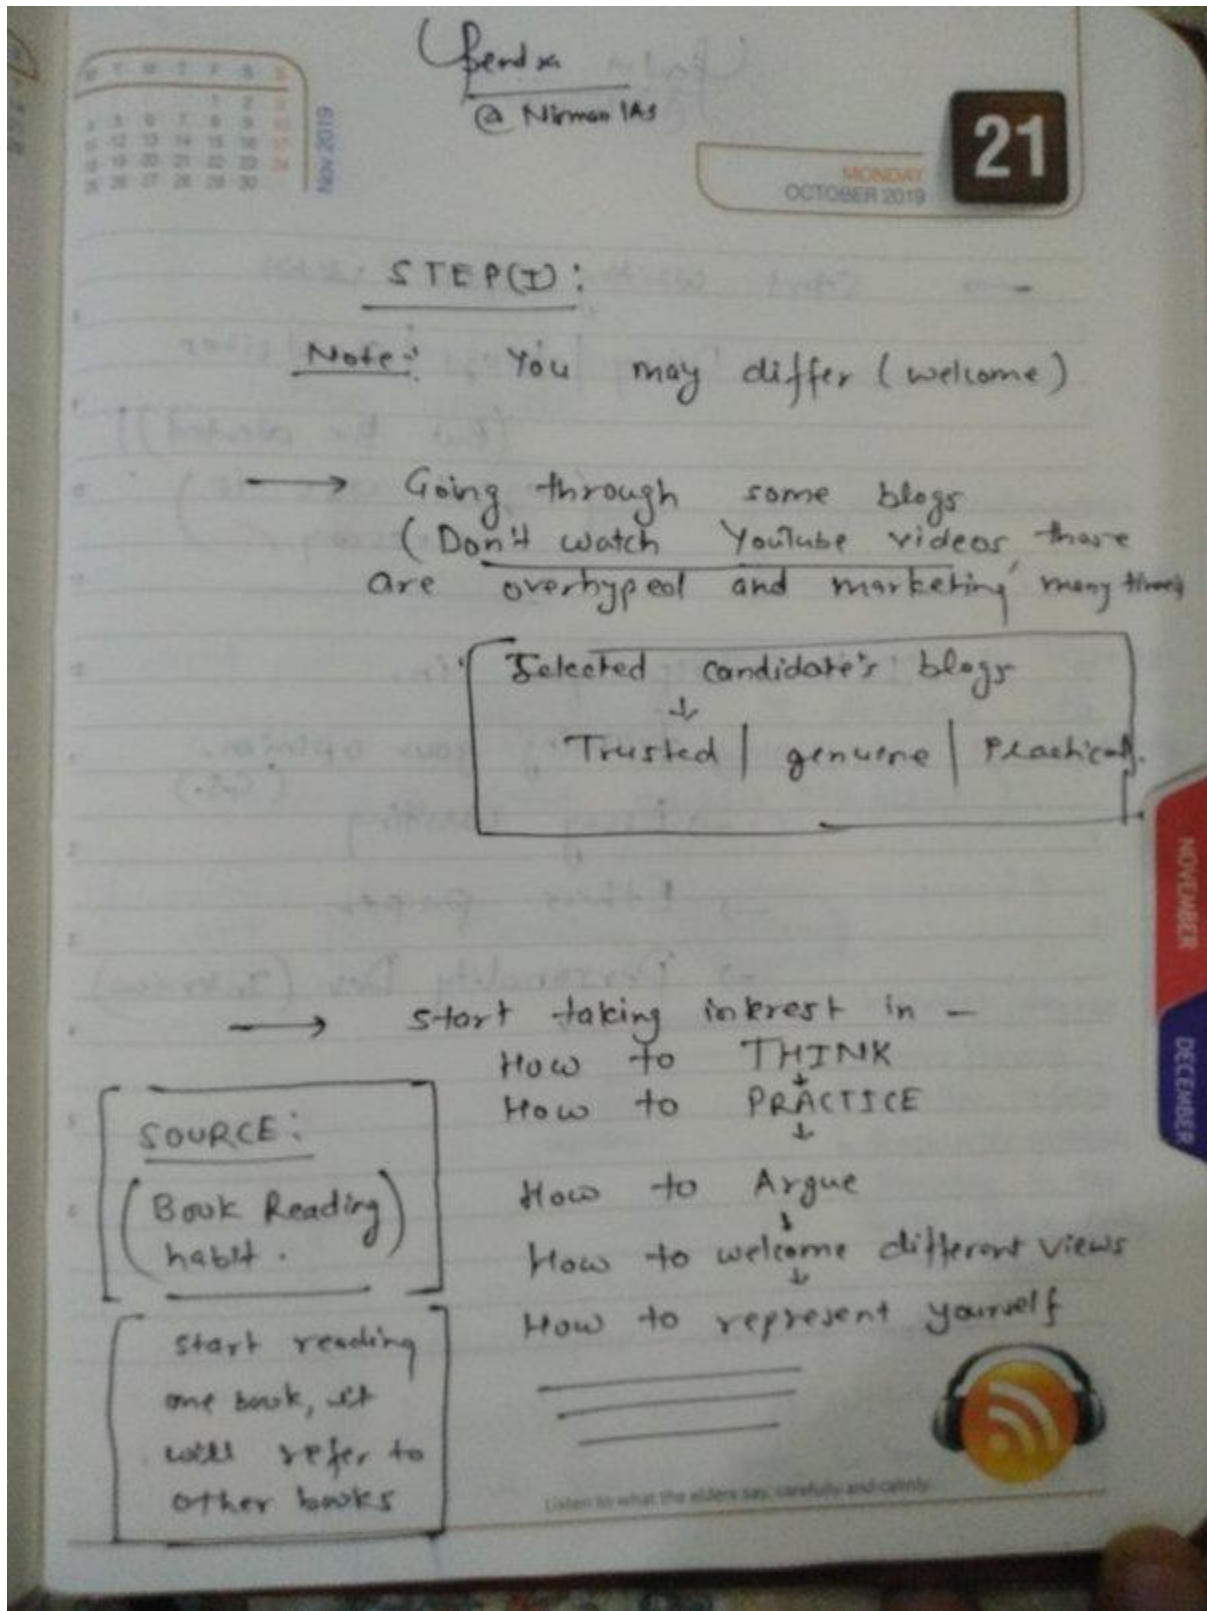 Upendra
@ Nirman IAS
M T W T F S S
1 2 3
4 5 6 7 8 9 10
11 12 13 14 15 16 17
18 19 20 21 22 23 24
25 26 27 28 29 30
Nov 2019
21
MONDAY
OCTOBER 2019
STEP(I):
Note: You may differ (welcome)
→ Going through some blogs
(Don't watch YouTube videos, those
are overhyped and marketing many times
Selected candidate's blogs
↓
Trusted | genuine | Practical.
→ start taking interest in -
How to THINK
↓
How to PRACTICE
↓
How to Argue
↓
How to welcome different views
↓
How to represent yourself
SOURCE:
(Book Reading
habit.)
start reading
one book, it
will refer to
other books
Listen to what the elders say, carefully and calmly.
NOVEMBER
DECEMBER